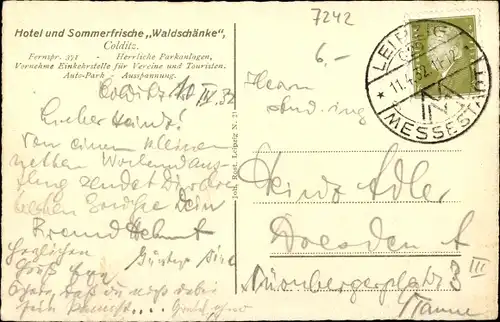 Hotel und Sommerfrische „Waldschänke",
Colditz.
Fernspr. 371 · Herrliche Parkanlagen,
Vornehme Einkehrstelle für Vereine und Touristen.
Auto-Park · Ausspannung.
7242
6.-
LEIPZIG
11.4.32.
MESSESTADT
Colditz 10 IV. 32
Lieber Heinz!
Von einem kleinen
netten Wochenendaus-
flug sendet Dir die
Grüße Dein
Freund Helmut
Herzlichen
Gruß
Günter
Herrn
stud. ing.
Heinz Adler
Dresden A
Nürnbergerplatz 3 III
Joh. Rost, Leipzig N. 21